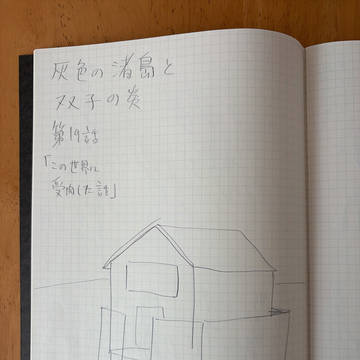 灰色の渚島と
双子の炎
第19話
「この世界に
受肉した話」